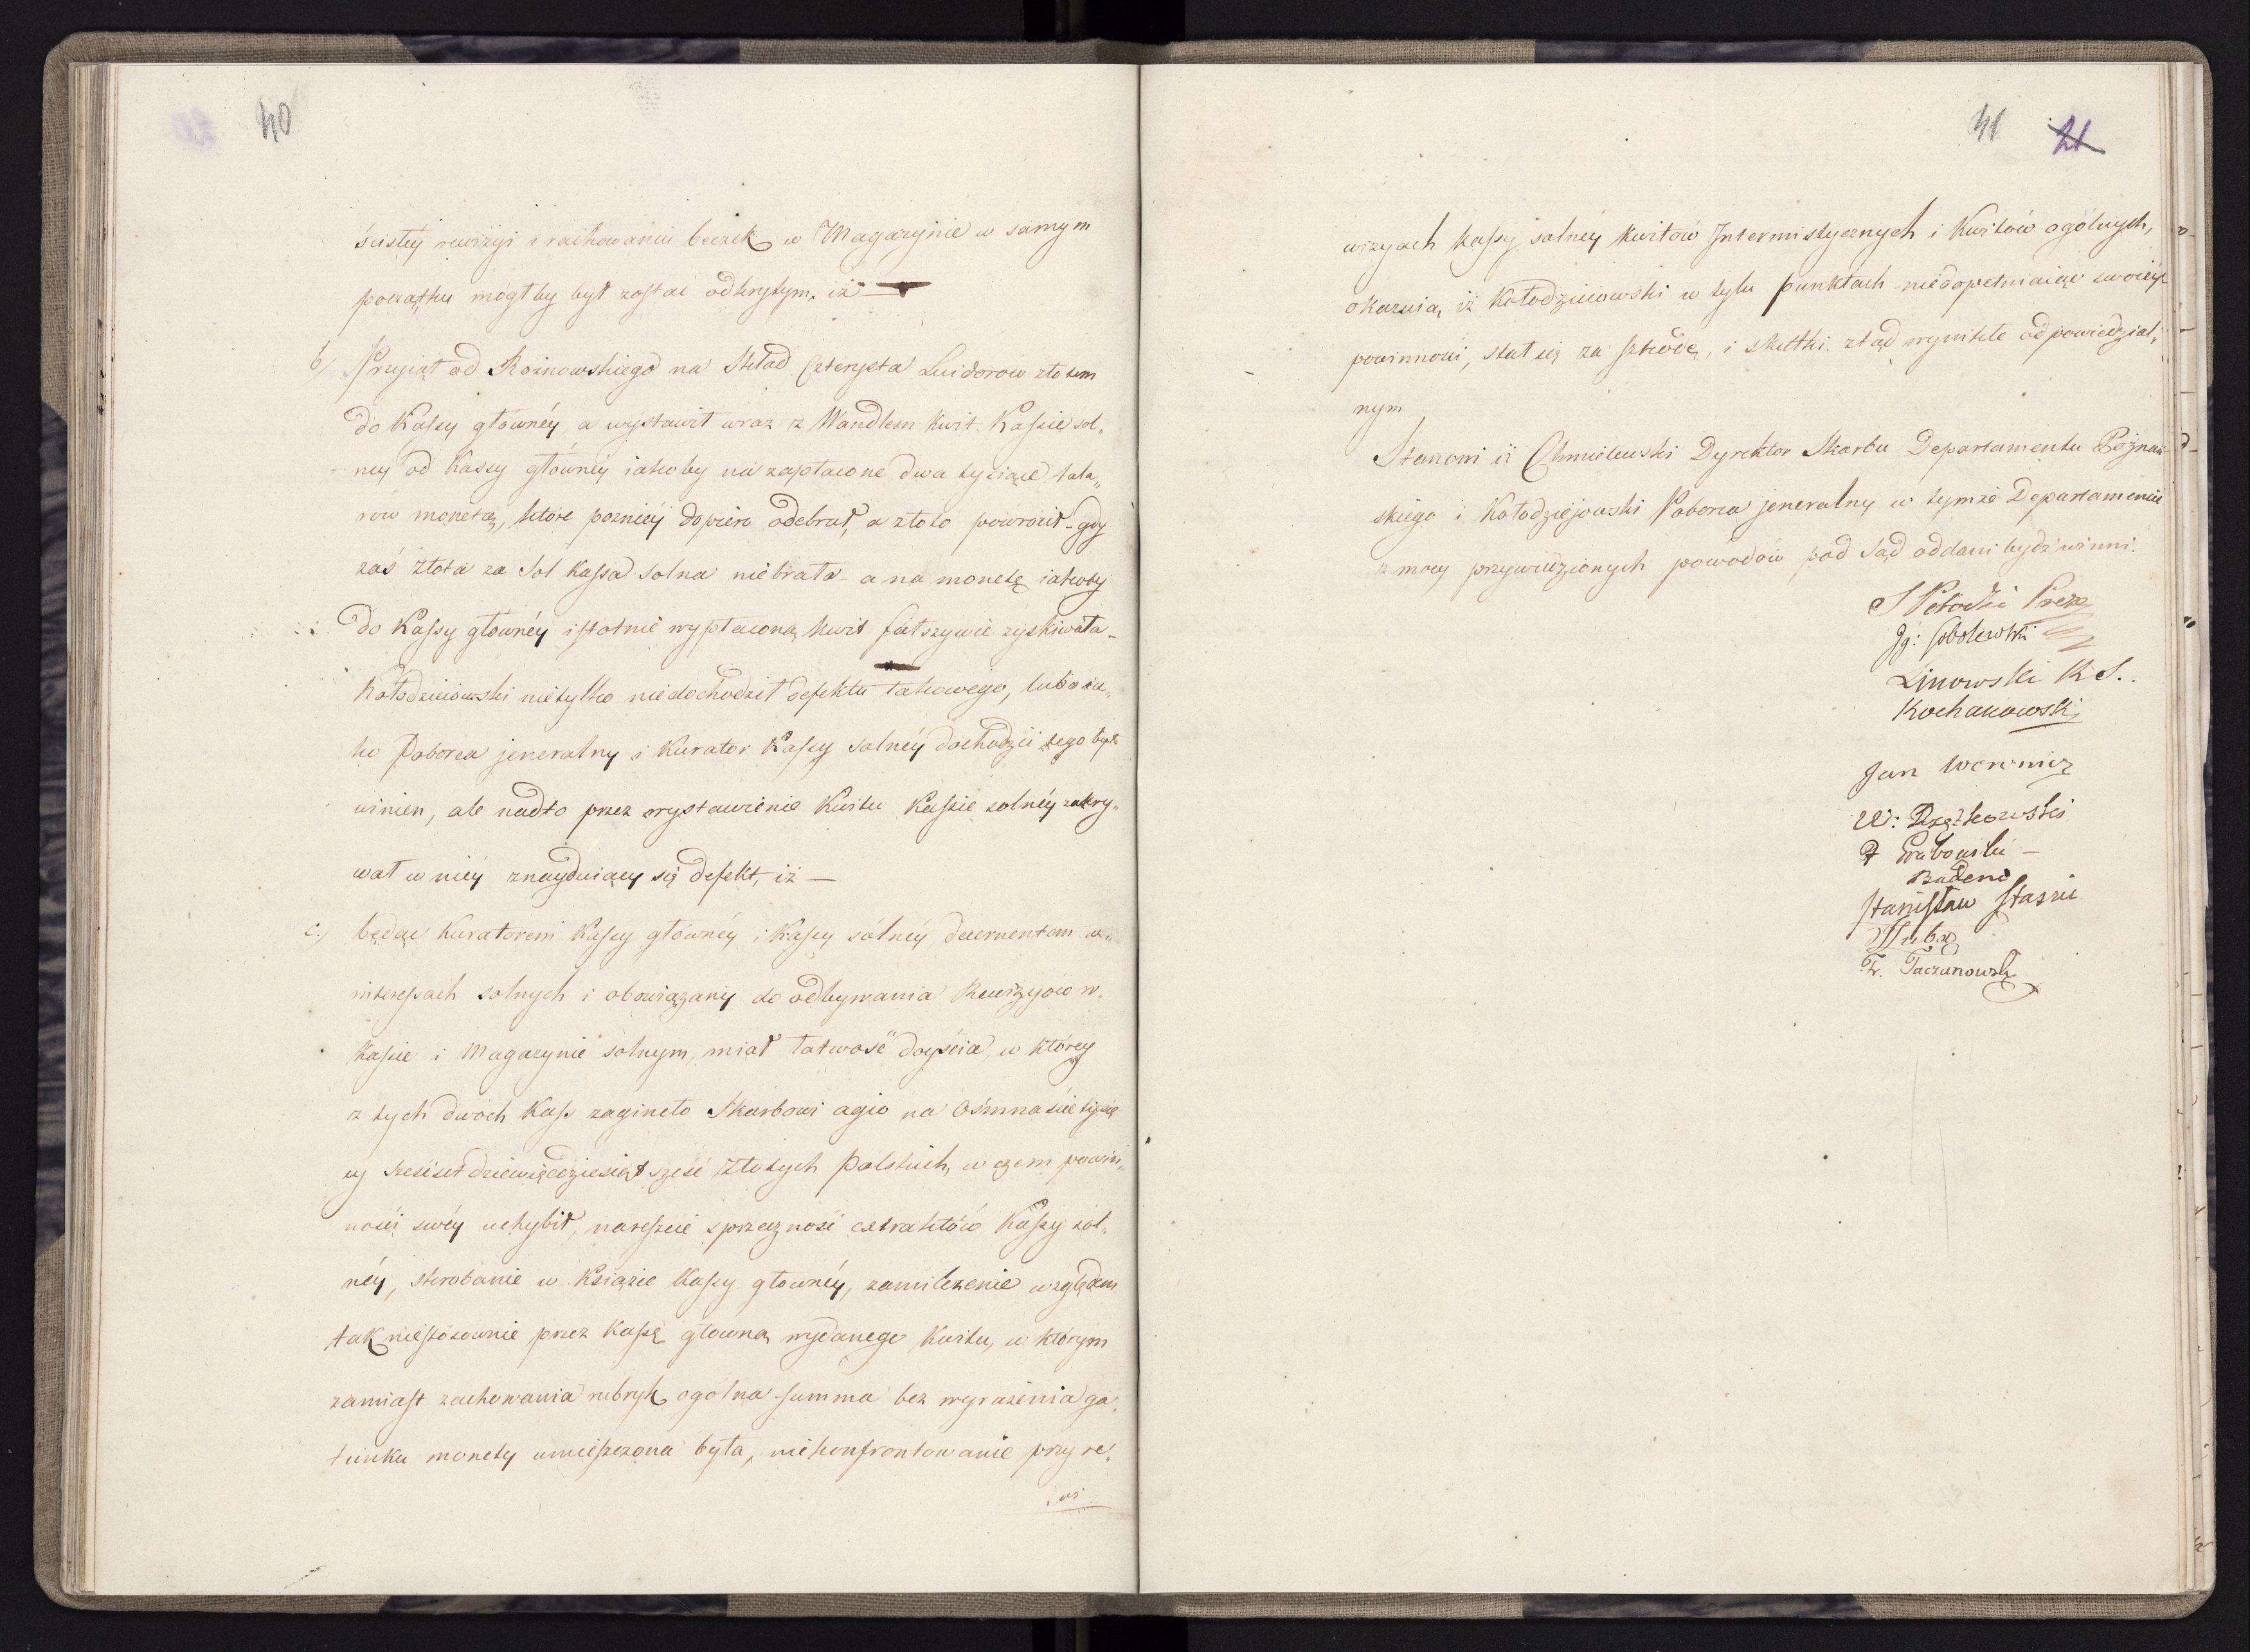 40
ścisłéy rewizyi i rachowaniu beczek w Magazynie w samym
początku mógłby był zostać odkrytym, iż —
b/ Przyiął od Rożnowskiego na Skład czterysta Luidorów złotem
do Kassy głównéy a wystawił wraz z Wandlem kwit Kassie sol„
néy od Kassy główney iakoby na zapłacone dwa tysiące tala„
rów monetą, które pozniéy dopiero odebrał, a złoto powrócił – gdy
zaś złota za Sol Kassa solna niebrała – a na monetę iakoby
do Kassy główney istotnie wypłaconą kwit fałszywie zyskiwała –
Kołodzieiowski nietylko niedochodził defektu takowego, lubo ia„
ko Poborca jeneralny i Kurator Kassy solnéy dochodzić tego był
winien, ale nadto przez wystawienie Kwitu Kassie solnéy zakry„
wał w niéy znayduiący się defekt, iż —
c./ będąc Kuratorem Kassy główney i Kassy solnéy, decernentem w„
interessach solnych i obowiązany do odbywania Rewizyiów w„
Kassie i Magazynie solnym, miał łatwość doyścia, w któréy
z tych dwóch Kass zagineło Skarbowi agio na Osmnaście tysię
cy sześćset dziewięćdziesiąt sześć Złotych Polskich, w czem powin„
ności swéy uchybił, nareszcie sprzeczność extraktów Kassy sol„
néy, skrobanie w Książce Kassy główney, zamilczenie względem
tak niestosownie przez Kassę główną wydanego Kwitu, w którym
zamiast zachowania rubryk ogólna summa bez wyrażenia ga„
tunku monety umieszczona była, niekonfrontowanie przy re„
wi
41 21
wizyach Kassy solnéy kwitów Intermistycznych i Kwitów ogólnych,
okazuią, iż Kołodzieiowski w tylu punktach niedopełniaiąc swoiéy
powinności, stał się za szkodę, i skutki ztąd wynikłe odpowiedzial„
nym
Stanowi iż Chmielewski Dyrektor Skarbu Departamentu Poznań
skiego i Kołodziejowski Poborca jeneralny w tymże Departamencie
z mocy przywiedzionych powodów pod Sąd oddani bydź winni.
S Potocki Prezes
Ig: Sobolewski
Linowski R S.
Kochanowski
Jan Woronicz
W: Rzętkowski
Grabowski —
Badeni
Stanisław Staszic
Fr. Taczanowski